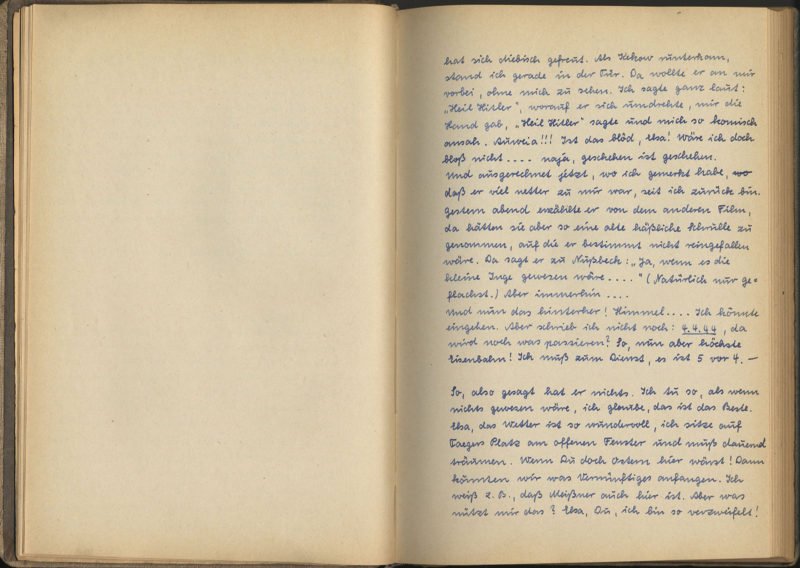 hat sich diebisch gefreut. Als Kekow runterkam,
stand ich gerade in der Tür. Da wollte er an mir
vorbei, ohne mich zu sehen. Ich sagte ganz laut:
„Heil Hitler", worauf er sich umdrehte, mir die
Hand gab, „Heil Hitler" sagte und mich so komisch
ansah. Auweia!!! Ist das blöd, Usa! Wäre ich doch
bloß nicht .... naja, geschehen ist geschehen.
Und ausgerechnet jetzt, wo ich gemerkt habe, wo
daß er viel netter zu mir war, seit ich zurück bin.
Gestern abend erzählte er von dem anderen Film,
da hätten sie aber so eine alte häßliche Schrulle zu
genommen, auf die er bestimmt nicht reingefallen
wäre. Da sagt er zu Nußbeck: „Ja, wenn es die
kleine Inge gewesen wäre ...." (Natürlich nur ge=
flachst.) Aber immerhin ....
Und nun das hinterher! Himmel.... Ich könnte
eingehen. Aber schrieb ich nicht noch: 4.4.44, da
wird noch was passieren? So, nun aber höchste
Eisenbahn! Ich muß zum Dienst, es ist 5 vor 4. —
So, also gesagt hat er nichts. Ich tu so, als wenn
nichts gewesen wäre, ich glaube, das ist das Beste.
Usa, das Wetter ist so wundervoll, ich sitze auf
Taegers Platz am offenen Fenster und muß dauernd
träumen. Wenn Du doch Ostern hier wärst! Dann
könnten wir was Vernünftiges anfangen. Ich
weiß z. B., daß Meißner auch hier ist. Aber was
nützt mir das? Usa, Du, ich bin so verzweifelt!